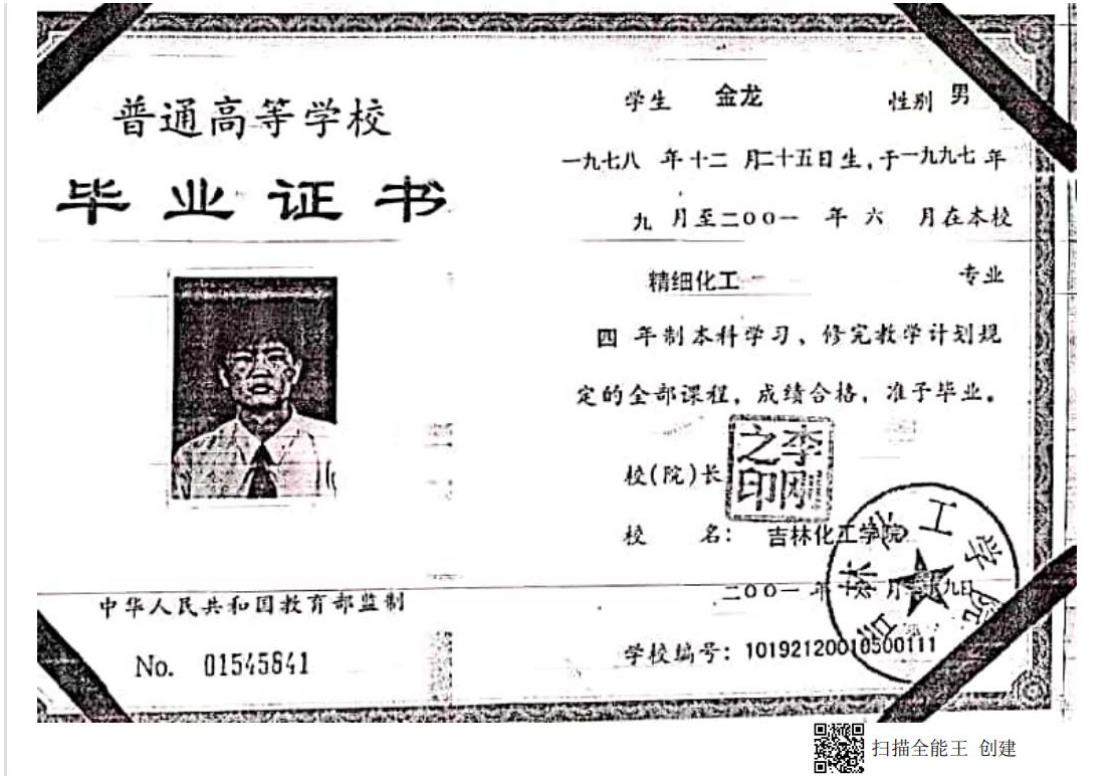 普通高等学校
毕业证书
中华人民共和国教育部监制
No. 01545641
学生 金龙 性别 男
一九七八 年十二 月二十五日生,于一九九七 年
九 月至二〇〇一 年 六 月在本校
精细化工 专业
四 年制本科学习、修完教学计划规
定的全部课程,成绩合格,准予毕业。
校(院)长
李刚之印
校 名: 吉林化工学院
二〇〇一年六月二十九日
学校编号:10192120010500111
吉林化工学院
扫描全能王 创建